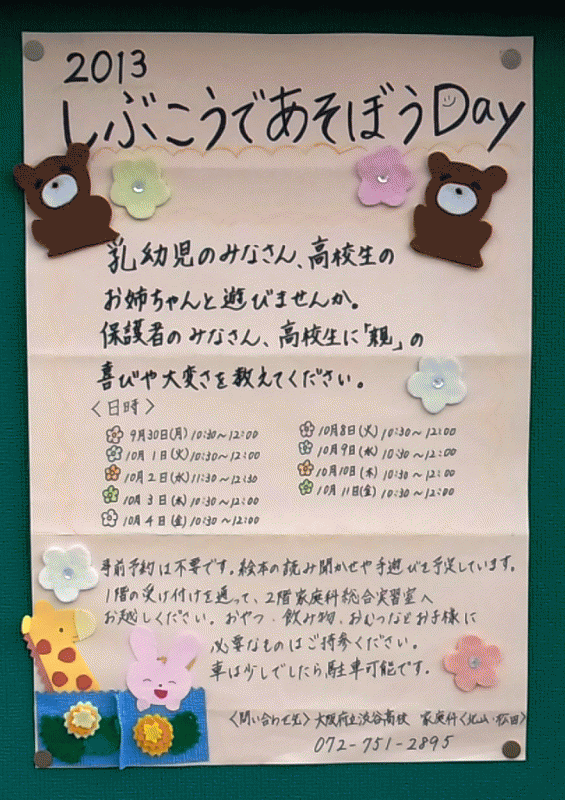 2013
しぶこうであそぼうDay
乳幼児のみなさん、高校生の
お姉ちゃんと遊びませんか。
保護者のみなさん、高校生に「親」の
喜びや大変さを教えてください。
〈日時〉
9月30日(月) 10:30～12:00
10月1日(火) 10:30～12:00
10月2日(水) 11:30～12:30
10月3日(木) 10:30～12:00
10月4日(金) 10:30～12:00
10月8日(火) 10:30～12:00
10月9日(水) 10:30～12:00
10月10日(木) 10:30～12:00
10月11日(金) 10:30～12:00
事前予約は不要です。絵本の読み聞かせや手遊びを予定しています。
1階の受け付けを通って、2階家庭科総合実習室へ
お越しください。おやつ・飲み物、おむつなどお子様に
必要なものはご持参ください。
車は少しでしたら駐車可能です。
〈問い合わせ先〉大阪府立渋谷高校 家庭科〈北山・松田〉
072-751-2895